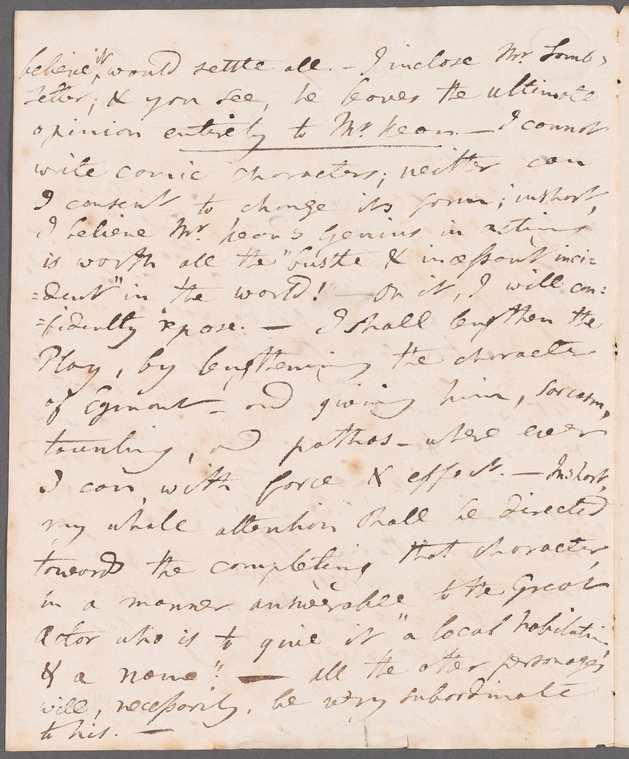 believe it, would settle all. — I inclose Mr. Lamb's
letter; & you see, he leaves the ultimate
opinion entirely to Mr Kean. — I cannot
write comic characters; neither can
I consent to change its form; inshort,
I believe Mr. Kean's Genius in acting
is worth all the "bustle & incessant inci=
=dent" in the world! — On it, I will con:
=fidently repose. — I shall lengthen the
Play, by lengthening the character
of Egmont — and giving him, sarcasm,
taunting, and pathos — where ever
I can, with force & effect. — Inshort,
my whole attention shall be directed
towards the completing that character,
in a manner answerable to the Great
Actor who is to give it "a local habitation
& a name". — all the other personages
will, necessarily, be very subordinate
to his. —